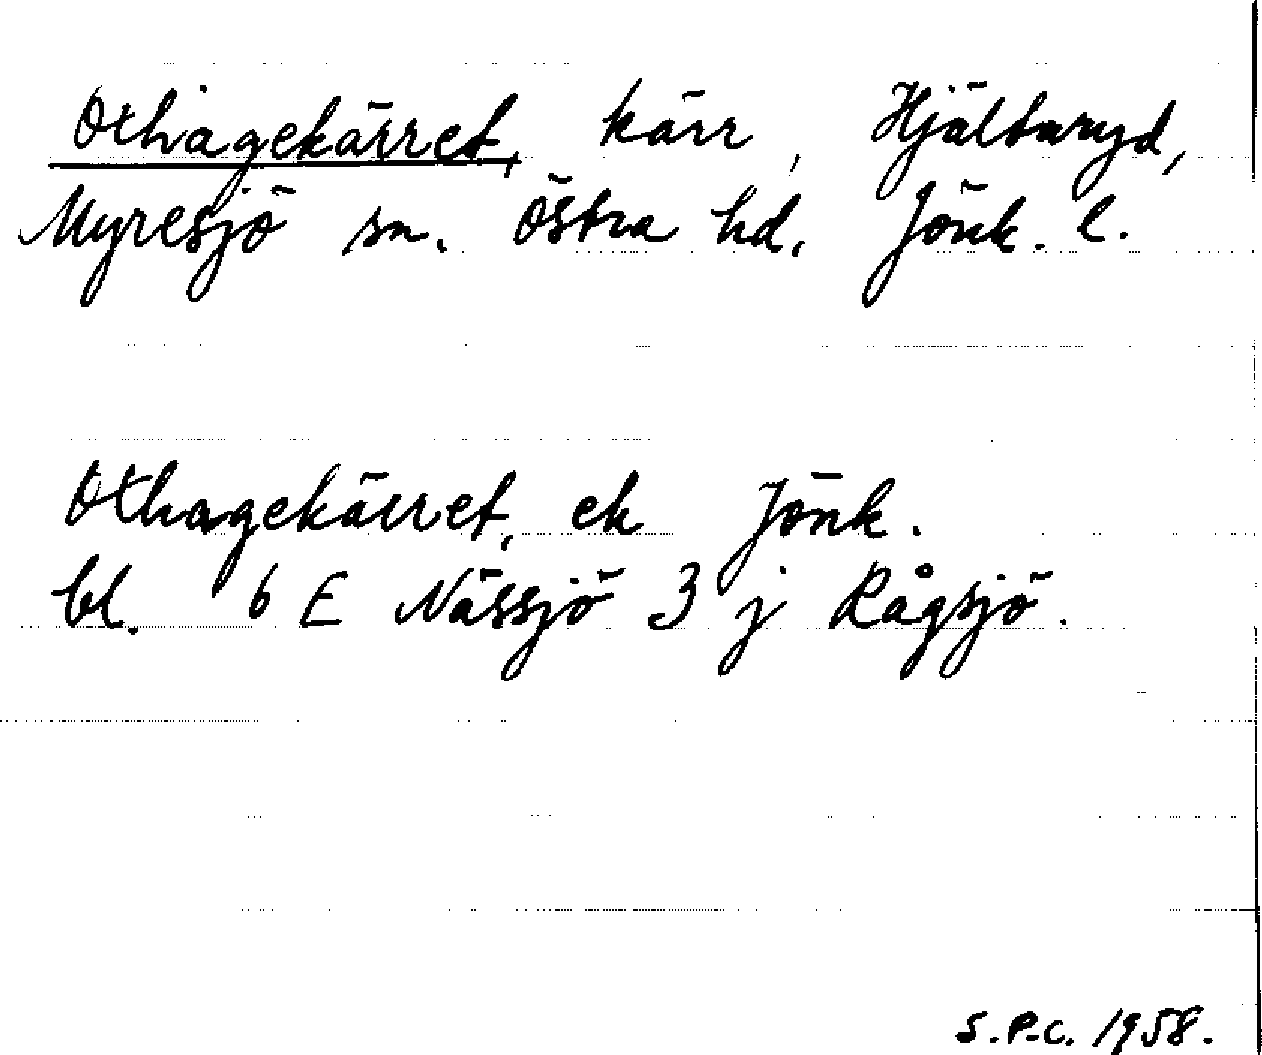 Othagekärret, kärr, Hjältaryd,
Myresjö sn. Östra hd. Jönk. l.
Othagekärret, ek Jönk.
bl. 6 E Nässjö 3 j Rågsjö.
S.P-C. 1958.